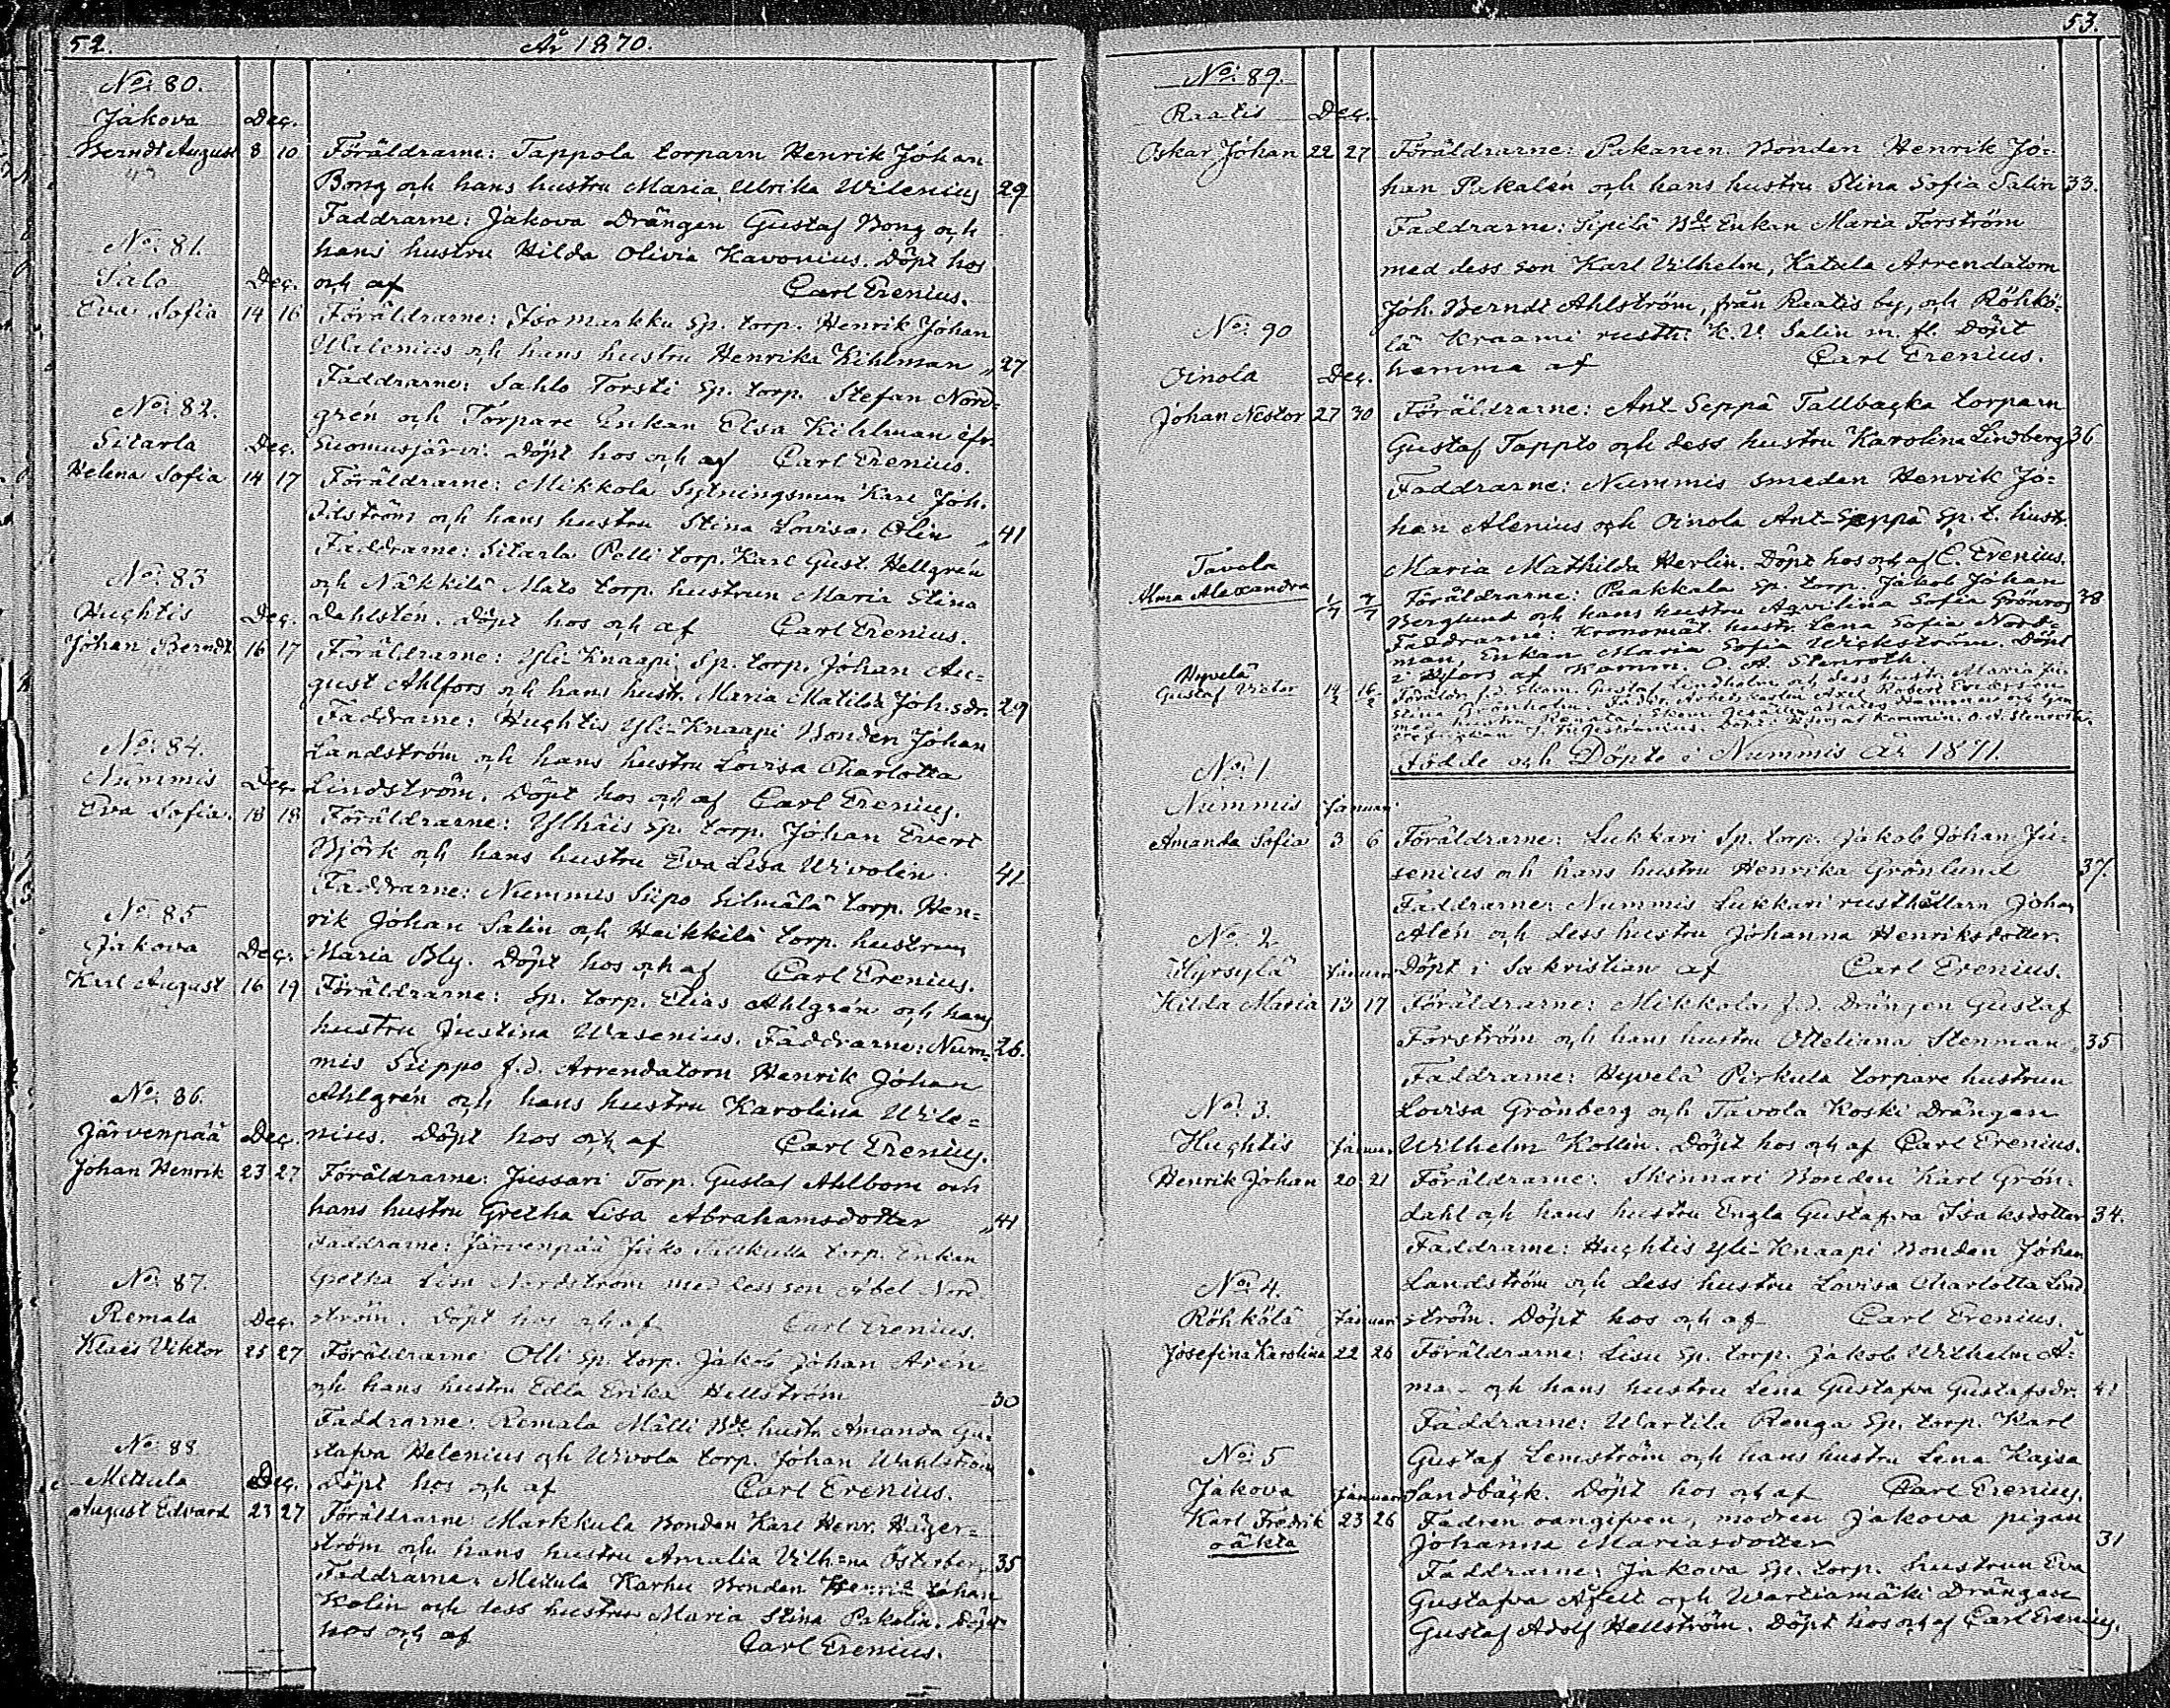 52.
År 1870.
No: 80.
Jakova Dec.
Berndt August 8 10 Föräldrarne: Tappola torparn Henrik Johan
Bong och hans hustru Maria Ulrika Wilenius 29
Faddrarne: Jakova Drängen Gustaf Bong och
hans hustru Hilda Olivia Kavonius. Döpt hos
och af Carl Erenius.
No: 81.
Salo Dec.
Eva Sofia 14 16 Föräldrarne: Isomarkku Sp. torp. Henrik Johan
Walenius och hans hustru Henrika Kihlman „ 27
Faddrarne: Sahlo Torsti Sp. torp. Stefan Nord=
grén och Torpare Enkan Elsa Kihlman ifr.
Suomusjärvi. Döpt hos och af Carl Erenius.
No: 82.
Sitarla Dec.
Helena Sofia 14 17 Föräldrarne: Mikkola Sytningsman Karl Joh.
och hans hustru Stina Lovisa Olin „ 41
Faddrarne: Sitarla Pelli torp. Karl Gust. Hellgrén
och Näkkilä Mato torp. hustrun Maria Stina
Dahlstén. Döpt hos och af Carl Erenius.
No: 83
Huhtis Dec.
Johan Berndt 16 17 Föräldrarne: Yli-Knaapi Sp. torp. Johan Au=
gust Ahlfors och hans hustr. Maria Matilda Joh.sdr. 29
Faddrarne: Huhtis Yli-Knaapi Bonden Johan
Landström och hans hustru Lovisa Charlotta
Lindström. Döpt hos och af Carl Erenius.
No: 84.
Nummis Dec.
Eva Sofia. 18 18 Föräldrarne: Ylhäis Sp. torp. Johan Evert
Björk och hans hustru Eva Lisa Wivolin 41
Faddrarne: Nummis Siipo Silmälä torp. Hen=
rik Johan Salin och Heikkilä torp. hustrun
Maria Bly. Döpt hos och af Carl Erenius.
No: 85
Jakova Dec.
Karl August 16 19 Föräldrarne: Sp. torp. Elias Ahlgrén och hans
hustru Justina Wasenius. Faddrarne: Num= 26.
mis Siippo f.d. Arrendatorn Henrik Johan
Ahlgrén och hans hustru Karolina Wile=
nius. Döpt hos och af Carl Erenius.
No: 86.
Järvenpää Dec.
Johan Henrik 23 27 Föräldrarne: Jussari Torp. Gustaf Ahlbom och
hans hustru Gretha Lisa Abrahamsdotter „ 41
Faddrarne: Järvenpää torp. Enkan
Gretha Lisa Nordström med dess son Abel Nord=
ström. Döpt hos och af Carl Erenius.
No: 87.
Remala Dec.
Klaës Viktor 25 27 Föräldrarne: Olli Sp. torp. Jakob Johan Arén
och hans hustru Edla Erika Hellström 30
Faddrarne: Remala Mälli Bde hustr. Amanda Gu=
stafva Helenius och Wivola torp. Johan Wahlström
Döpt hos och af Carl Erenius.
No: 88.
Mettula Dec.
August Edvard 23 27 Föräldrarne: Markkula Bonden Karl Henr. Häger=
ström och hans hustru Amalia Vilh=na Österberg 35
Faddrarne: Mettula Karhu Bonden Henrik Johan
Kolin och dess hustru Maria Stina Pakolin. Döpt
hos och af Carl Erenius.
53.
No: 89.
Raatis Dec.
Oskar Johan 22 27 Föräldrarne: Pakanen Bonden Henrik Jo=
han Pakalén och hans hustru Stina Sofia Salin 33.
Faddrarne: Sipilä Bde Enkan Maria Forström
med dess son Karl Vilhelm, Katala Arrendatorn
Joh. Berndt Ahlström, från Raatis by, och Röhkö=
lä Kraami rusth. K. V. Salin m. fl. Döpt
hemma af Carl Erenius.
No: 90
Oinola Dec.
Johan Nestor 27 30 Föräldrarne: Ant-Seppä Tallbacka torparn
Gustaf Tappto och dess hustru Karolina Lindberg 36
Faddrarne: Nummis Smeden Henrik Jo=
han Alenius och Oinola Ant-Seppä Sp. t. hustr.
Maria Mathilda Herlin. Döpt hos och af C. Erenius.
Tavola
Alma Alexandra Föräldrarne: Paakkala Sp. torp. Jakob Johan
Berglund och hans hustru Aqvilina Sofia Grönros 38
Faddrarne: Kronomåt. hustr. Lena Sofia Nord=
man, Enkan Maria Sofia Wickström. Döpt
i H:fors af Komm. O. A. Stenroth.
Hyvelä
Gustaf Victor 14/2 16/2 Gustaf Lindholm och dess hustr. Maria
Stina Grönholm. Axel Robert
hustru Renata O. A. Stenroth.
Födde och Döpte i Nummis År 1871.
No: 1
Nummis Januari
Amanda Sofia 3 6 Föräldrarne: Lukkari Sp. torp. Jakob Johan Ju=
senius och hans hustru Henrika Grönlund 37.
Faddrarne: Nummis Lukkari rusthållarn Johan
Alén och dess hustru Johanna Henriksdotter.
Döpt i Sakristian af Carl Erenius.
No: 2
Hyrsylä Januari
Hilda Maria 13 17 Föräldrarne: Mikkola f.d. Drängen Gustaf
Forström och hans hustru Otteliana Stenman „ 35
Faddrarne: Hyvelä Pirkula torpare hustrun
Lovisa Grönberg och Tavola Koski Drängen
Wilhelm Kollin. Döpt hos och af Carl Erenius.
No: 3.
Huhtis Januari
Henrik Johan 20 21 Föräldrarne: Skinnari Bonden Karl Grön=
dahl och hans hustru Engla Gustafva Isaksdotter 34.
Faddrarne: Huhtis Yli-Knaapi Bonden Johan
Landström och dess hustru Lovisa Charlotta Lind=
ström. Döpt hos och af Carl Erenius.
No: 4.
Röhkölä Januari
Josefina Karolina 22 26 Föräldrarne: Lisu Sp. torp. Jakob Wilhelm A=
ma- och hans hustru Lena Gustafva Gustafsdr. 41
Faddrarne: Wartila Renga Sp. torp. Karl
Gustaf Lemström och hans hustru Lena Kajsa
Sandbäck. Döpt hos och af Carl Erenius.
No: 5
Jakova Januari
Karl Fredrik 23 26 Fadren oangifven, modren Jakova pigan
oäkta
Johanna Mariasdotter 31
Faddrarne: Jakova Sp. torp. hustrun Eva
Gustafva Afelt och Wartiamäki Drängen
Gustaf Adolf Hellström. Döpt hos och af Carl Erenius.